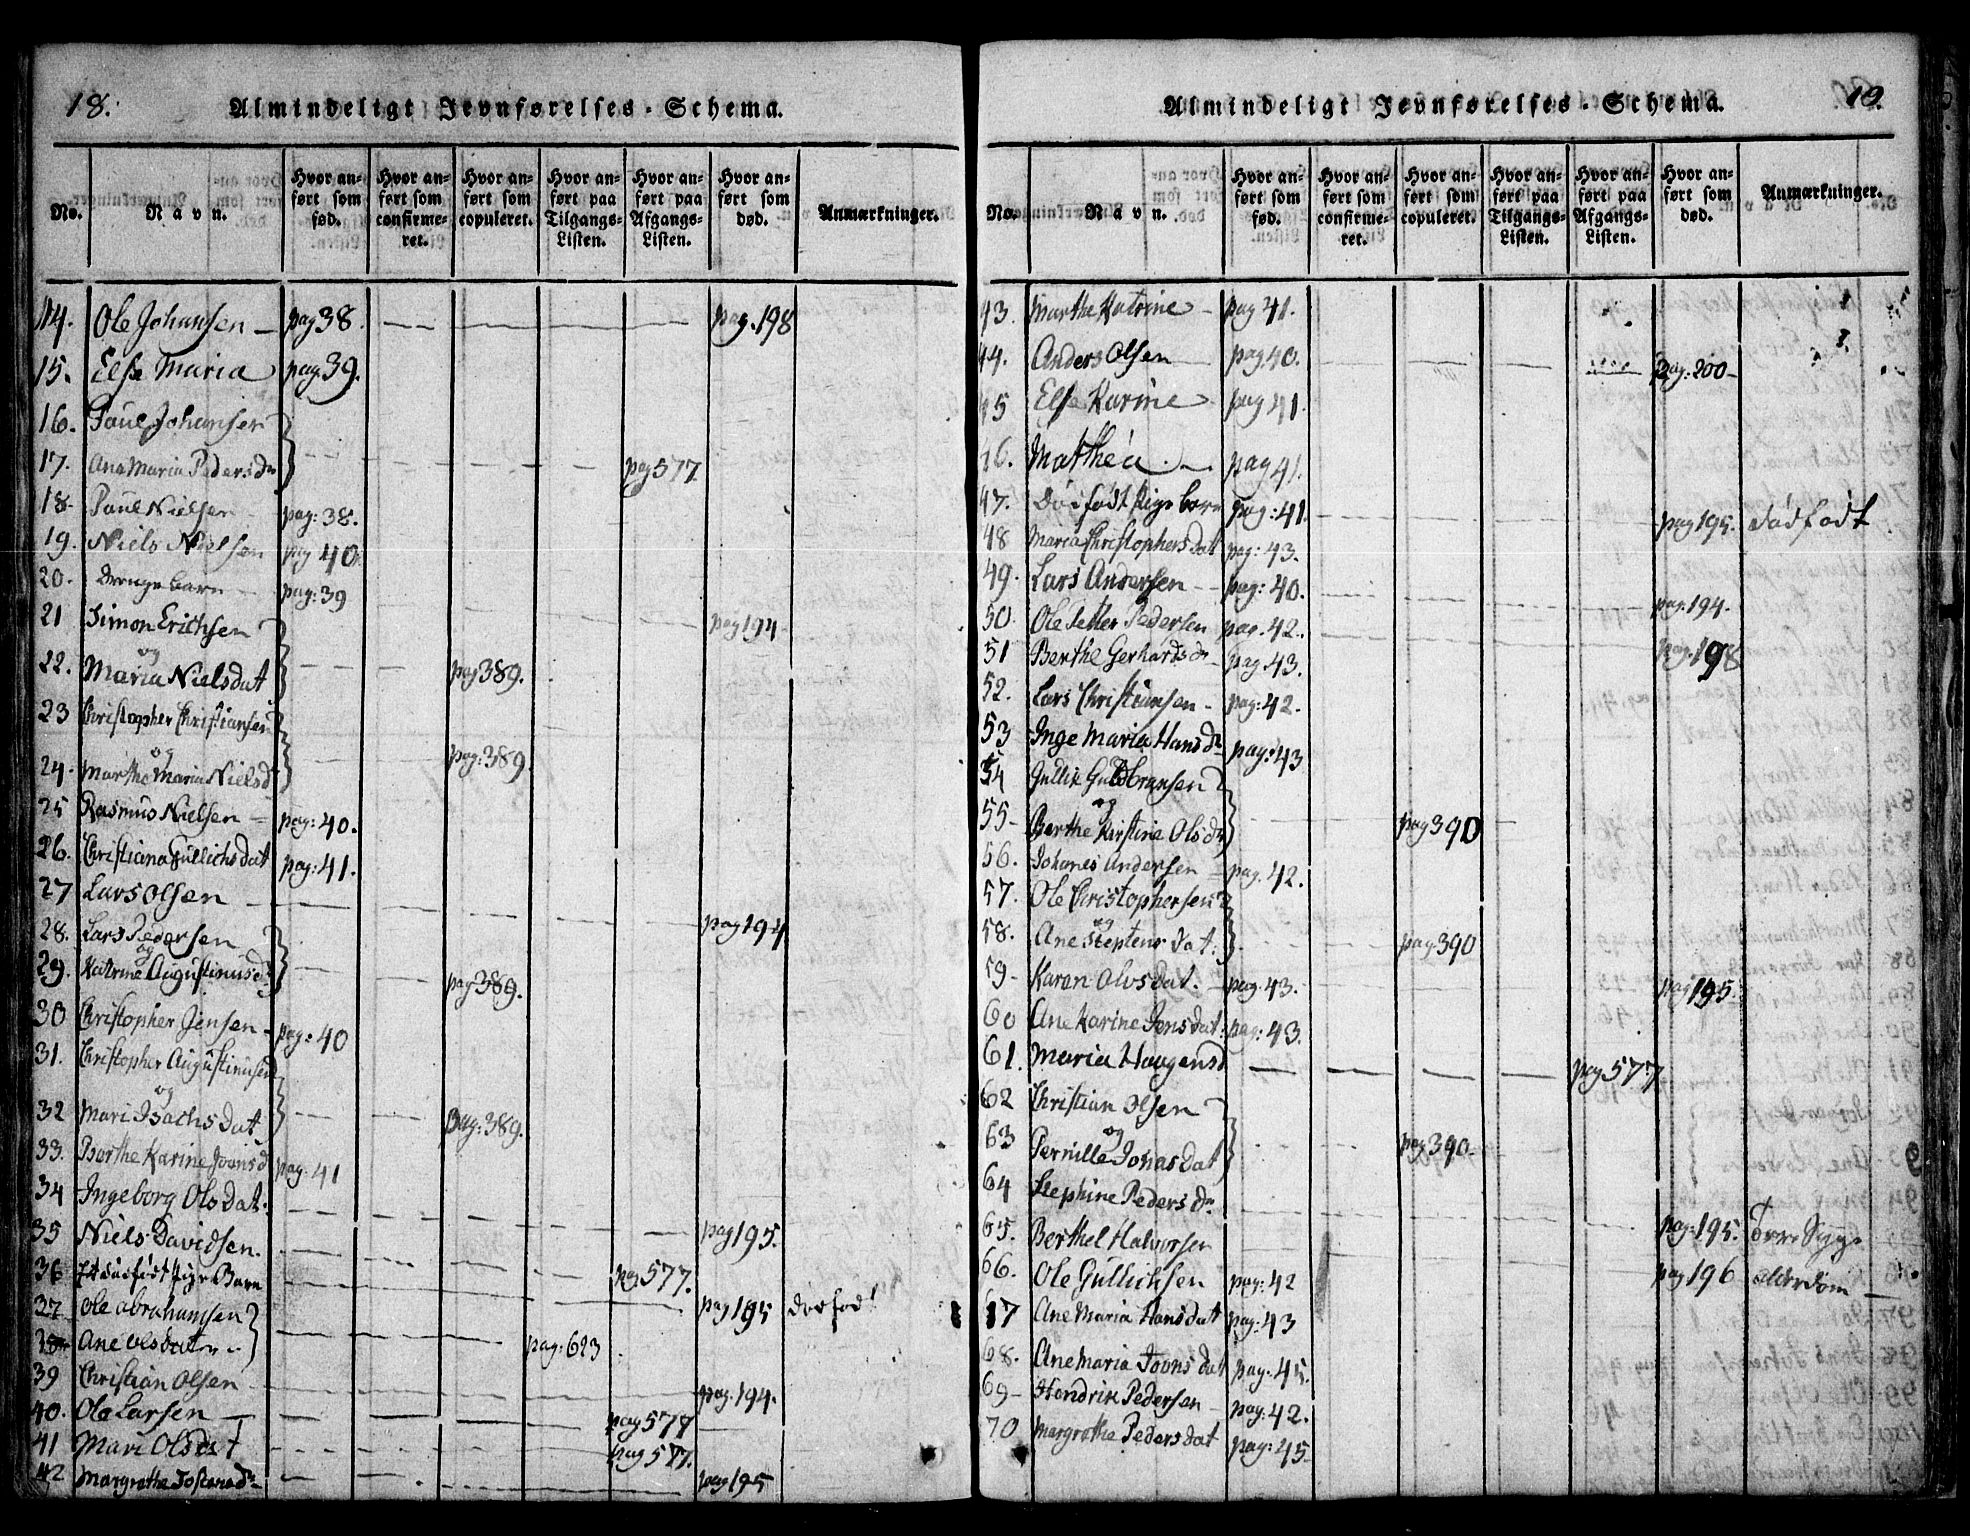 18.
Almindeligt Jevnførelses-Schema.
No. Navn. Hvor anført som fød. Hvor anført som confirmeret. Hvor anført som copuleret. Hvor anført paa Tilgangs-Listen. Hvor anført paa Afgangs-Listen. Hvor anført som død. Anmærkninger.
14. Ole Johansen pag 38. pag. 198
15. Else Maria pag 39.
16. Poul Johansen
17. Ane Maria Pedersdr pag 577.
18. Poul Nielsen pag: 38.
19. Niels Nielsen pag 40.
20. Drenge barn pag: 39
21 Simon Erichsen pag 194
og
22. Maria Nielsdat pag 389.
23 Christopher Christiansen
og
24. Marthe Maria Nielsd pag: 389.
25 Rasmus Nielsen pag: 40.
26. Christiana Gullichsdat pag: 41.
27 Lars Olsen pag 194
28. Lars Pedersen
og
29. Katrine Augustinusd. pag 389.
30 Christopher Jensen pag: 40
31. Christopher Augustinusen
og
32 Mari Isachsdat pag: 389.
33. Berthe Karine Joonsd pag. 41
34 Ingeborg Olsdat. pag 195.
35 Niels Davidsen. pag 577.
36 Et dødfødt Pige Barn pag 195 dødfød
37 Ole Abrahamsen
38 Ane Olsdat pag: 623
39 Christian Olsen pag. 194.
40. Ole Larsen pag 577
41 Mari Olsdat pag 577.
42 Margrethe Jostensdr pag 195
19.
Almindeligt Jevnførelses-Schema.
No. Navn. Hvor anført som fød. Hvor anført som confirmeret. Hvor anført som copuleret. Hvor anført paa Tilgangs-Listen. Hvor anført paa Afgangs-Listen. Hvor anført som død. Anmærkninger.
43. Marthe Katrine pag 41.
44. Anders Olsen pag 40. pag: 200
45 Else Karine pag 41.
46. Mathea pag 41.
47. Dødfødt Pige barn pag: 41. pag 195. dødfødt
48 Maria Christophersdat pag: 43.
49. Lars Andersen pag: 40. pag. 194.
50. Ole Petter Pedersen pag. 42. pag. 198
51 Berthe Gerhardsdr pag. 43.
52. Lars Christiansen pag: 42.
53 Inge Maria Hansdr pag: 43
54 Gullik Guldbransen
og
55. Berthe Kirstine Olsdr pag 390
56. Johanes Andersen pag. 42.
57. Ole Christophersen
og
58. Ane Steptensdat. pag 390
59 Karen Olvsdat. pag. 43. pag 195.
60 Ane Karine Jonsdat. pag: 43.
61. Maria Haagensd pag 577
62 Christian Olsen
og
63 Pernille Jonasdat pag 390.
64 Stephine Pedersdr pag. 195.
65. Berthel Halvorsen pag 196 Alderdom
66. Ole Gullichsen pag: 42
67 Ane Maria Hansdat pag: 43
68. Ane Maria Joonsdat pag. 45.
69 Hendrik Pedersen pag: 42.
70 Margrethe Pedersdat pag: 45